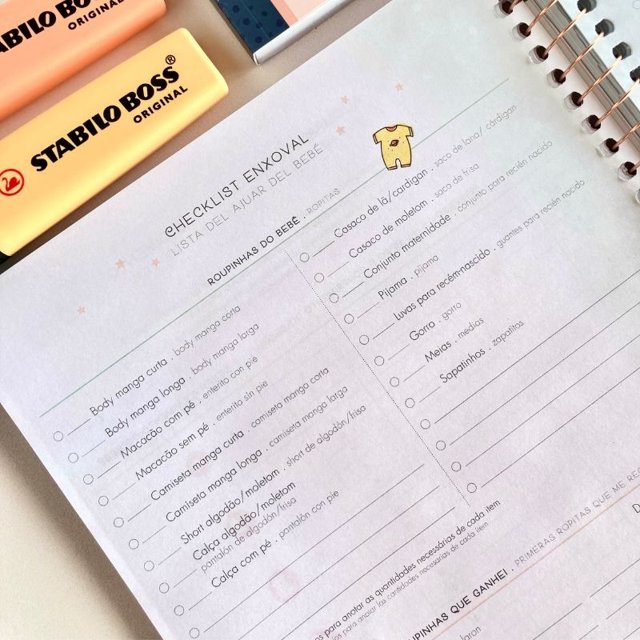 ABILO BOSS
ORIGINAL
STABILO BOSS
ORIGINAL
CHECKLIST ENXOVAL
LISTA DEL AJUAR DEL BEBÉ
ROUPINHAS DO BEBÉ . ROPITAS
Body manga curta . body manga corta
Body manga longa . body manga larga
Macacão com pé . enterito con pie
Macacão sem pé . enterito sin pie
Camiseta manga curta . camiseta manga corta
Camiseta manga longa . camiseta manga larga
Short algodão/moletom . short de algodón/frisa
Calça algodão/moletom
pantalón de algodón/frisa
Calça com pé . pantalón con pie
Casaco de lã/cardigan . saco de lana/ cárdigan
Casaco de moletom . saco de frisa
Conjunto maternidade . conjunto para recén nacido
Pijama . pijama
Luvas para recém-nascido . guantes para recén nacido
Gorro . gorro
Meias . medios
Sapatinhos . zapatitos
os para anotar as quantidades necessárias de cada item
os para anotar las cantidades necesarias de cada item
UPINHAS QUE GANHEI . PRIMERAS ROPITAS QUE ME RE